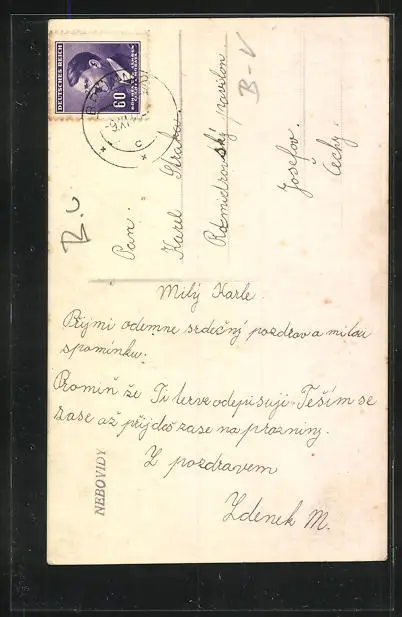 DEUTSCHES REICH
60
B-V
B.V
Pan.
Karel Straka
Rozmidrovský pavilon.
Josefov.
Čechy.
Milý Karle.
Přijmi odemne srdečný pozdrav a milou
spomínku.
Promiň že Ti terve odepisuji. Teším se
zase až přijdeš zase na prazniny.
Z pozdravem
Zdenek M.
NEBOVIDY